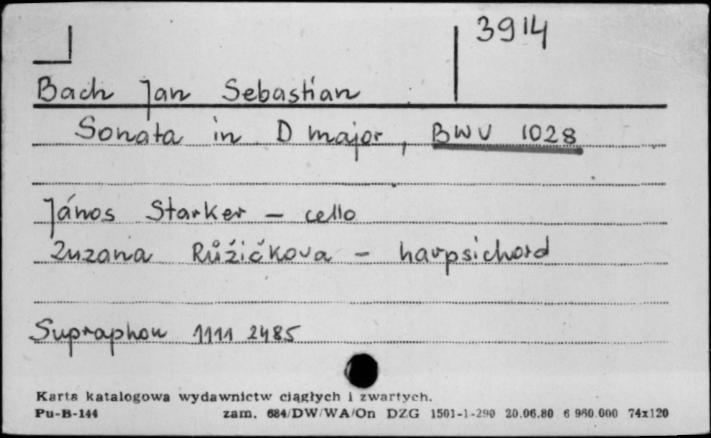 3914
Bach Jan Sebastian
Sonata in D major, BWV 1028
János Starker – cello
Zuzana Růžičkova – harpsichord
Supraphon 1111 2485
Karta katalogowa wydawnictw ciągłych i zwartych.
Pu-B-144 zam. 684/DW/WA/On DZG 1501-1-290 20.06.80 6 960.000 74x120